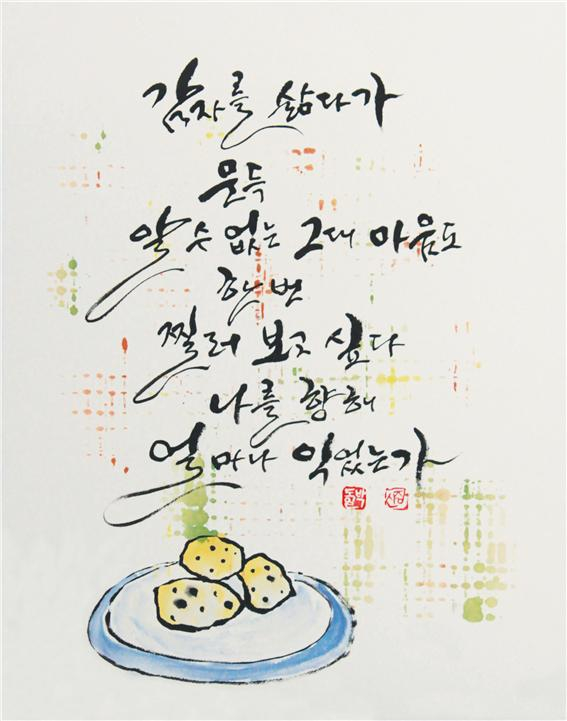 감자를 삶다가
문득
알 수 없는 그대 마음도
한번
찔러 보고 싶다
나를 향해
얼마나 익었는가